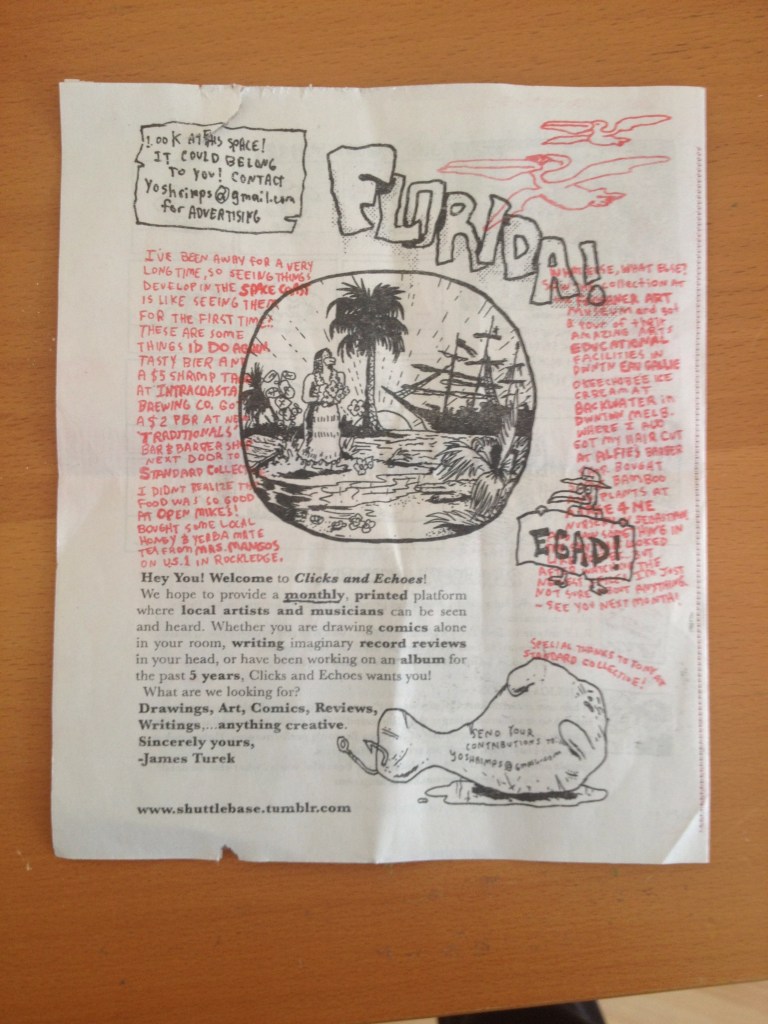 LOOK AT THIS SPACE!
IT COULD BELONG
TO YOU! CONTACT
Yoshrimps@gmail.com
for ADVERTISING
FLORIDA!
I'VE BEEN AWAY FOR A VERY
LONG TIME, SO SEEING THINGS
DEVELOP IN THE SPACE COAST
IS LIKE SEEING THEM
FOR THE FIRST TIME?
THESE ARE SOME
THINGS ID DO AGAIN.
TASTY BIER AND
A $5 SHRIMP
AT INTRACOASTAL
BREWING CO. GOT
A $2 PBR AT NEW
'TRADITIONALS'
BAR & BARBERSHOP
NEXT DOOR TO
STANDARD COLLECTIVE
I DIDNT REALIZE THE
FOOD WAS SO GOOD
AT OPEN MIKES!
BOUGHT SOME LOCAL
HONEY & YERBA MATE
TEA FROM MRS. MANGOS
ON U.S. 1 IN ROCKLEDGE.
WHAT ELSE, WHAT ELSE?
SAW THE collection AT
THE ART
MUSEUM and got
a tour of their
AMAZING ARTS
EDUCATIONAL
FACILITIES IN
DWNTN EAU GALLIE
OKEECHOBEE ICE
CREAM AT
BACKWATER in
DWNTWN MELB.
WHERE I ALSO
GOT MY HAIR CUT
AT ALFIE'S BARBER
BOUGHT
BAMBOO
PLANTS AT
NOT SURE ABOUT ANYTHING.
- SEE YOU NEXT MONTH!
EGAD!
Hey You! Welcome to Clicks and Echoes!
We hope to provide a monthly, printed platform
where local artists and musicians can be seen
and heard. Whether you are drawing comics alone
in your room, writing imaginary record reviews
in your head, or have been working on an album for
the past 5 years, Clicks and Echoes wants you!
What are we looking for?
Drawings, Art, Comics, Reviews,
Writings,...anything creative.
Sincerely yours,
-James Turek
www.shuttlebase.tumblr.com
SPECIAL THANKS TO TONY AT
STANDARD COLLECTIVE!
SEND YOUR
CONTRIBUTIONS TO
YOSHRIMPS@gmail.com